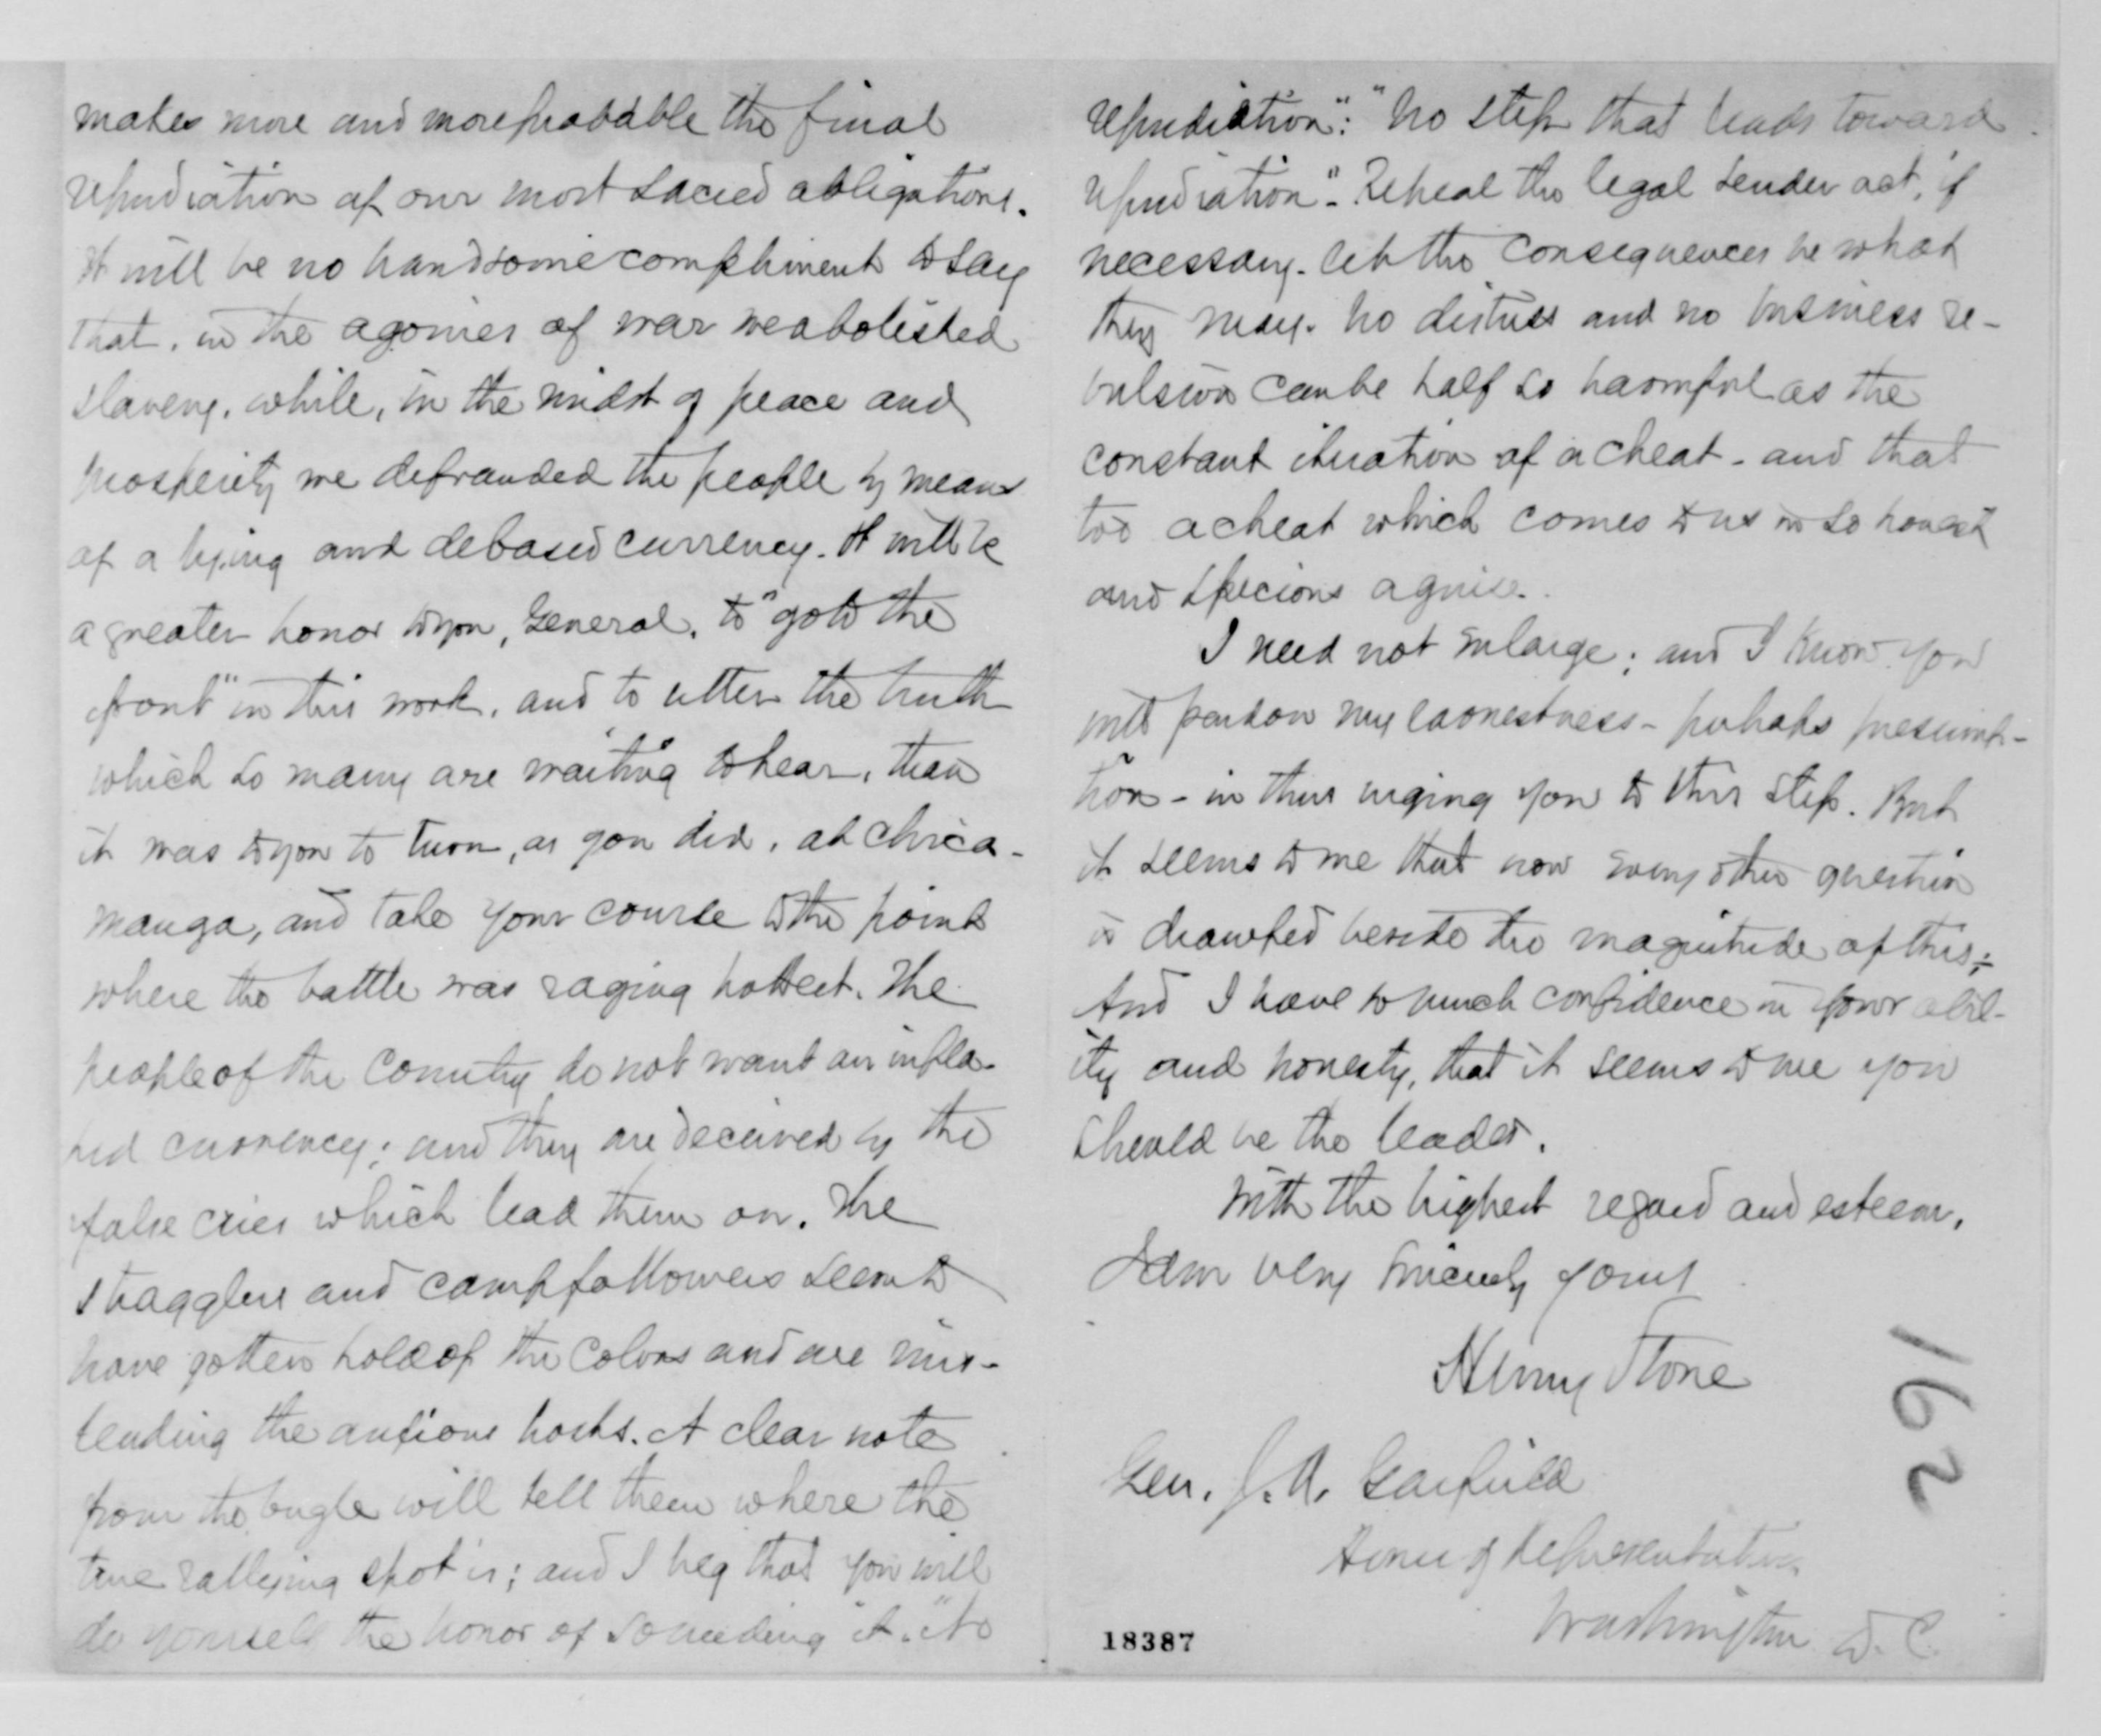 makes more and more probable the final
repudiation of our most sacred obligations.
It will be no handsome compliment to say
that, in the agonies of war we abolished
slavery, while, in the midst of peace and
prosperity we defrauded the people by means
of a lying and debased currency. It will be
a greater honor to you, General, to "go to the
front" in this work, and to utter the truth
which so many are waiting to hear, than
it was to you to turn, as you did, at Chica-
mauga, and take your course to the point
where the battle was raging hottest. The
people of the Country do not want an infla-
ted currency; and they are deceived by the
false cries which lead them on. The
stragglers and camp followers seem to
have gotten hold of the colors and are mis-
leading the anxious hosts. A clear note
from the bugle will tell them where the
true rallying spot is; and I beg that you will
do yourself the honor of sounding it. "No
repudiation": "No step that leads toward
repudiation". Repeal the legal tender act, if
necessary. Let the consequences be what
they may. No distress and no business re-
vulsion can be half so harmful as the
constant iteration of a cheat - and that
too a cheat which comes to us in so honest
and specious a guise.
I need not enlarge; and I know you
will pardon my earnestness - perhaps presump-
tion - in thus urging you to this step. But
it seems to me that now every other question
is dwarfed beside the magnitude of this;
And I have so much confidence in your abil-
ity and honesty, that it seems to me you
should be the leader.
With the highest regard and esteem,
I am very sincerely yours
Henry Stone
Gen. J. A. Garfield
House of Representatives
Washington D. C.
162
18387